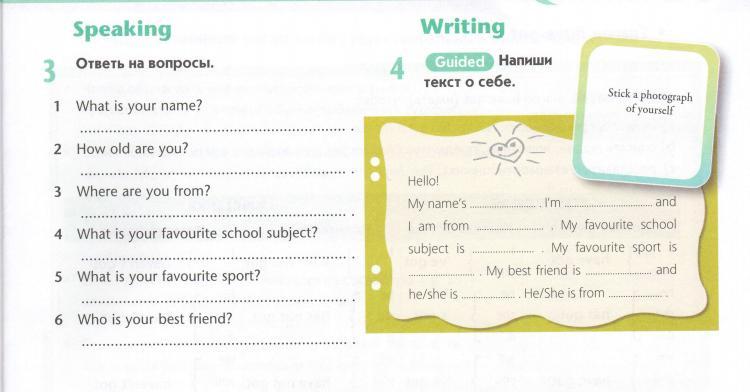 Speaking
3 Ответь на вопросы.
1 What is your name?
2 How old are you?
3 Where are you from?
4 What is your favourite school subject?
5 What is your favourite sport?
6 Who is your best friend?
Writing
4 Guided Напиши
текст о себе.
Stick a photograph
of yourself
Hello!
My name's .................. . I'm .................. and
I am from .................. . My favourite school
subject is .................. . My favourite sport is
.................. . My best friend is .................. and
he/she is .................. . He/She is from .................. .